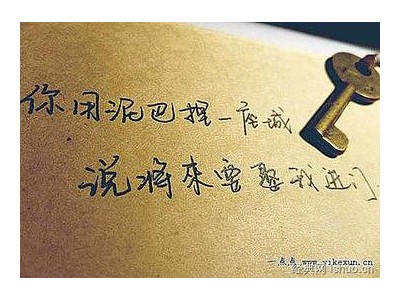 你用泥巴捏一座城
说将来要娶我进门
一点点 www.yikexun.cn
经典网 ishuo.cn